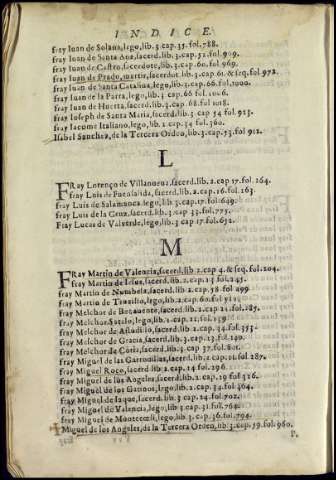 INDICE.
fray Iuan de Solano, lego, lib. 3. cap. 35. fol. 788.
fray Iuan de Santa Ana, sacerd. lib. 3. cap. 52. fol. 909.
fray Iuan de Castro, sacerdote, lib. 3. cap. 60. fol. 969.
fray Iuan de Prado, martir, sacerdot. lib. 3. cap. 61. & seq. fol. 972.
fray Iuan de Santa Catalina, lego, lib. 3. cap. 66. fol. 1000.
fray Iuan de la Parra, lego, lib. 3. cap. 66. fol. 1006.
fray Iuan de Huerta, sacerd. lib. 3. cap. 68. fol. 1018.
fray Ioseph de Santa Maria, sacerd. lib. 3. cap. 54. fol. 923.
fray Iacome Italiano, lego, lib. 2. cap. 34. fol. 360.
Isabel Sanchez, de la Tercera Orden, lib. 3. cap. 53. fol. 912.
L
FRay Lorenço de Villanueua, sacerd. lib. 2. cap. 17. fol. 264.
fray Luis de sacerd. lib. 2. cap. 16. fol. 263.
fray Luis de Salamanca, lego, lib. 3. cap. 17. fol. 649.
fray Luis de la Cruz, sacerd. lib. 3. cap. 33. fol. 775.
Fray Lucas de Valverde, lego, lib. 3. cap. 17. fol. 652.
M
FRay Martin de Valencia, sacerd. lib. 2. cap. 4. & seq. fol. 204.
fray Martin de Iesus, sacerd. lib. 2. cap. 13. fol. 245.
fray Martin de lego, lib. 2. cap. 58. fol. 499.
fray Martin de lego, lib. 2. cap. 60. fol.
fray Melchor de Benauente, sacerd. lib. 2. cap. 21. fol. 285.
fray Melchor lego, lib. 2. cap. 22. fol.
fray Melchor de Astudillo, sacerd. lib. 2. cap. 34. fol. 353.
fray Melchor de Gracia, sacerd. lib. 3. cap. 13. fol.
fray Melchor de Coria, sacerd. lib. 3. cap. 37. fol. 801.
fray Miguel de las Garrouillas, sacerd. lib. 2. cap. 21. fol. 287.
fray Miguel Roco, sacerd. lib. 2. cap. 24. fol. 296.
fray Miguel de los Angeles, sacerd. lib. 2. cap. 29. fol. 326.
fray Miguel de los lego, lib. 2. cap. 34. fol. 364.
fray Miguel de sacerd. lib. 3. cap. 24. fol. 702.
fray Miguel de Valencia, lego, lib. 3. cap. 31. fol. 764.
fray Miguel de lego, lib. 3. cap. 36. fol. 794.
Miguel de los Angeles, de la Tercera Orden, lib. 3. cap. 59. fol. 960.
P.